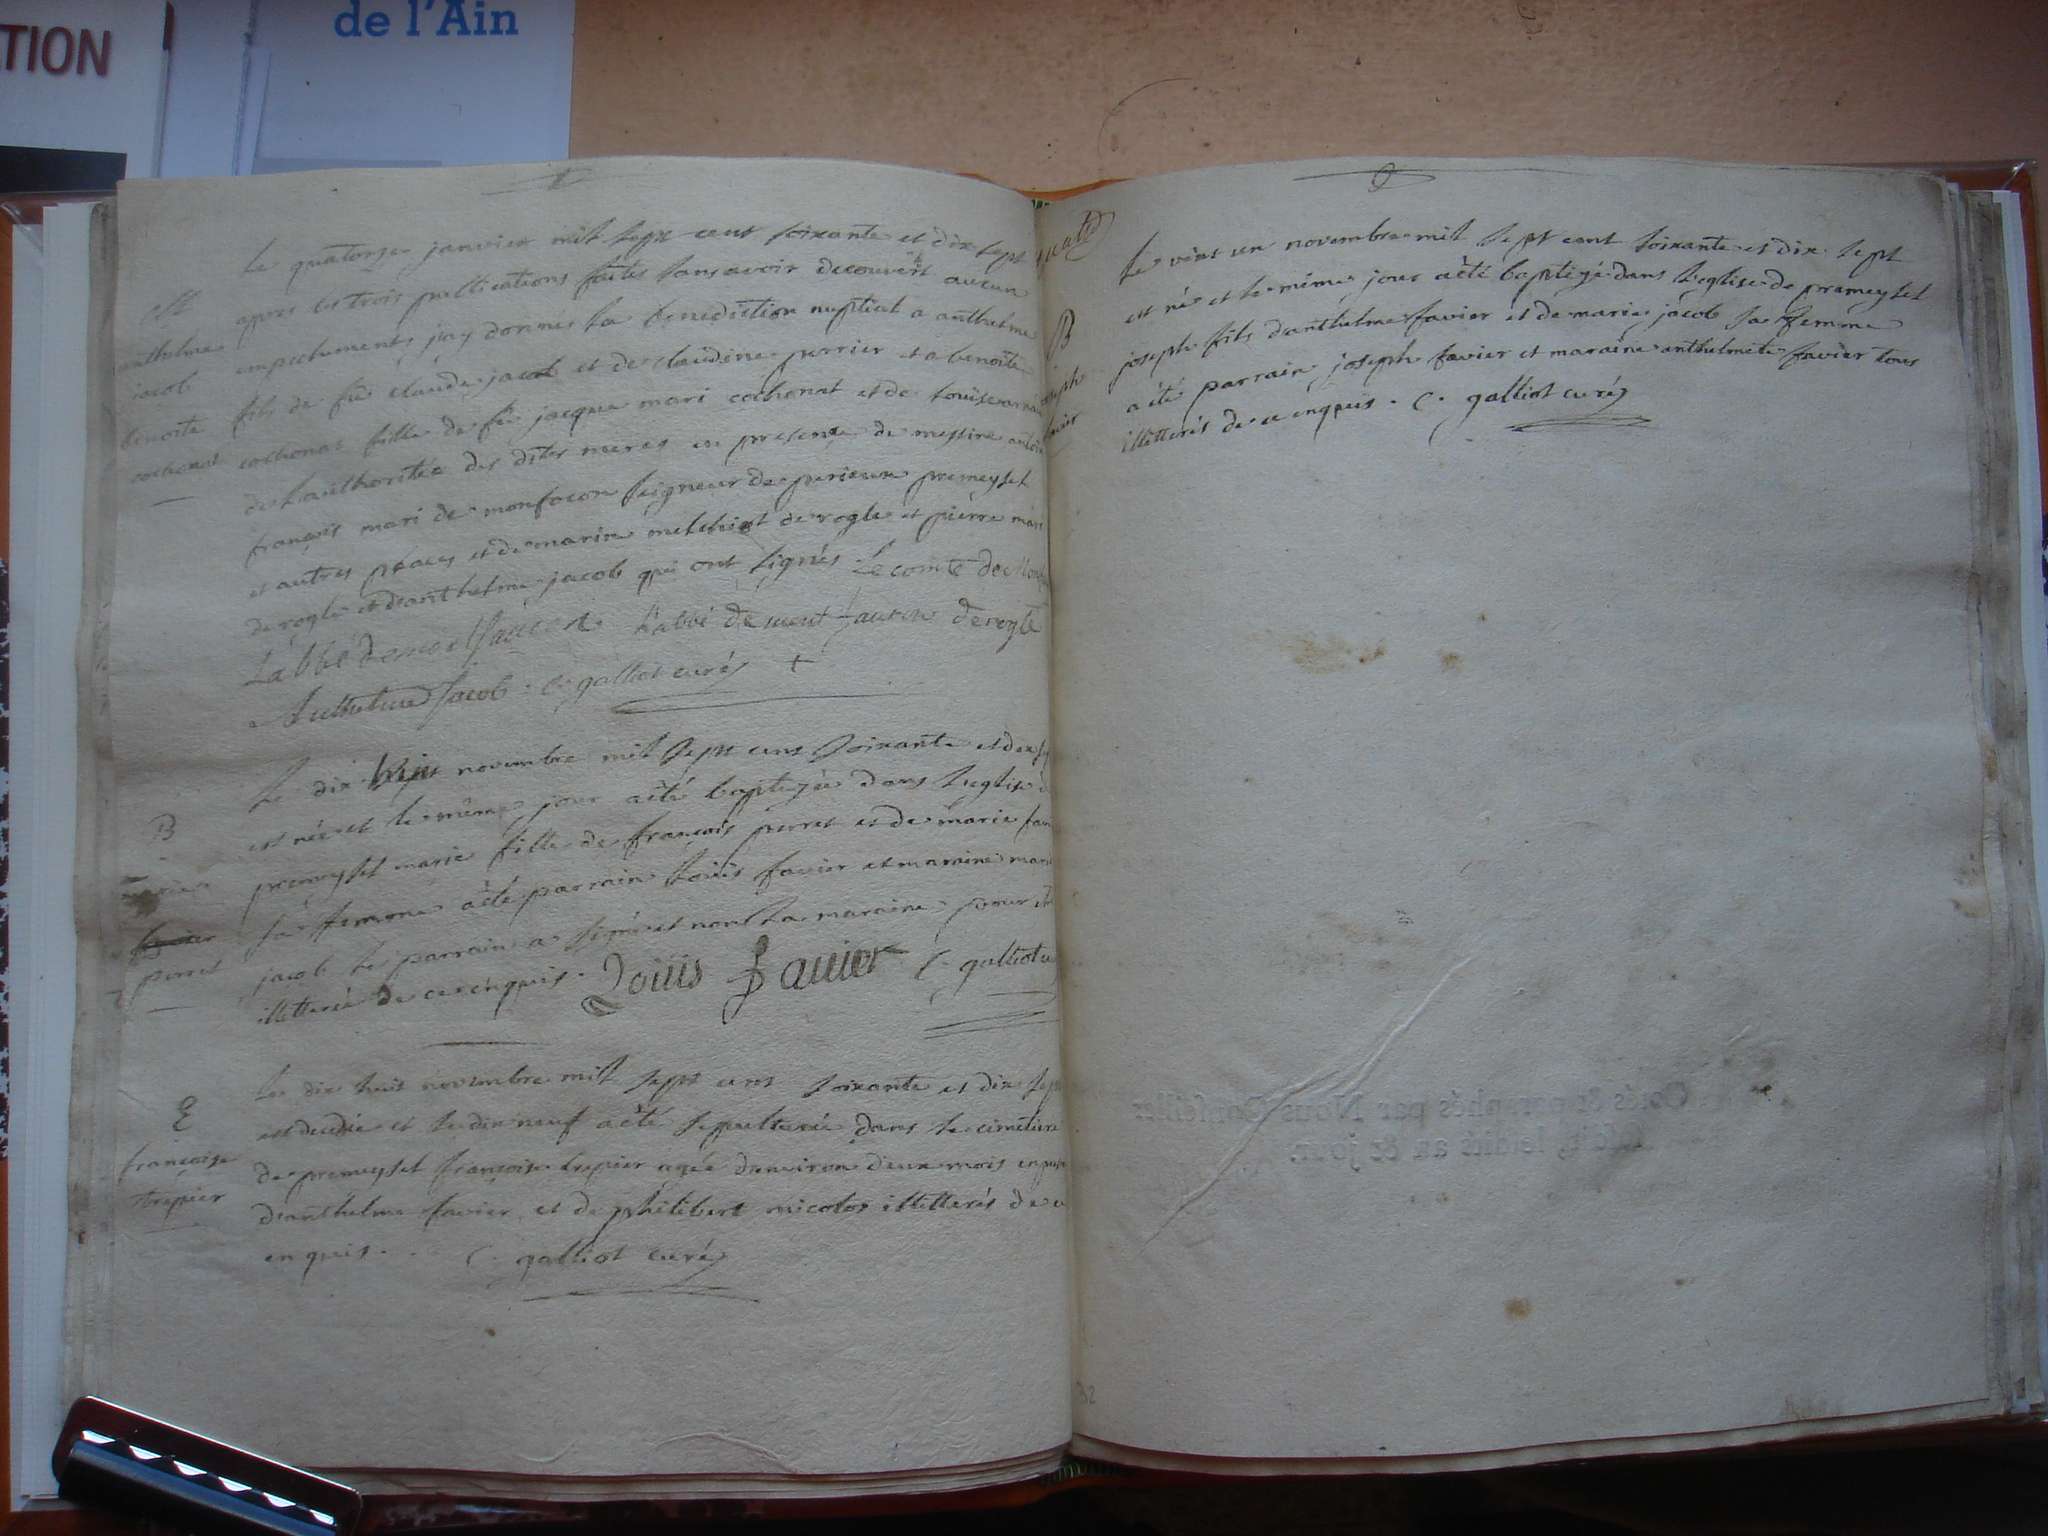 TION
de l'Ain
Le quatorze janvier mil sept cent soixante et dix sept
apres les trois publications faites sans avoir decouvert aucun
empechements jay donnés la benediction nuptial a anthelme
fils de feu claude jacob et de claudine perrier et a benoite
cochonat fille de feu jacque mari cochonat et de louise
de l'authoritée des dites meres en presence de messire
françois mari de monfacon seigneur de purieux premeysel
et autres places et de marin melchiot de rogle et pierre mari
de rogle et d'anthelme jacob qui ont signés Le comte de
L'abbé de L'abbé de mont faucon de rogle
Anthelme Jacob C. galliot curé +
M
anthelme
jacob
benoite
cochonat
Le dix novembre mil sept cent soixante et dix
est née et le même jour a été baptizée dans l'eglise
premeysel marie fille de françois perret et de marie
sa femme a été parrain loüis favier et maraine
jacob le parrain a signé et non la maraine pour
illetterée de ce enquis. Loüis Favier C. galliot
B
marie
perret
Le dix huit novembre mil sept cent soixante et dix sept
est decedée et le dix neuf a été sepulturée dans le cimetiere
de premeysel françoise trepier agée d'environ deux mois en
d'anthelme favier et de philibert micolos illetterés de ce
enquis. C. galliot curé
E
françoise
trepier
9
Le vint un novembre mil sept cent soixante et dix sept
est né et le même jour a été baptizé dans l'eglise de premeysel
joseph fils d'anthelme favier et de marie jacob sa femme
a été parrain joseph favier et maraine anthelmete favier tous
illetterés de ce enquis. C. galliot curé
B
32